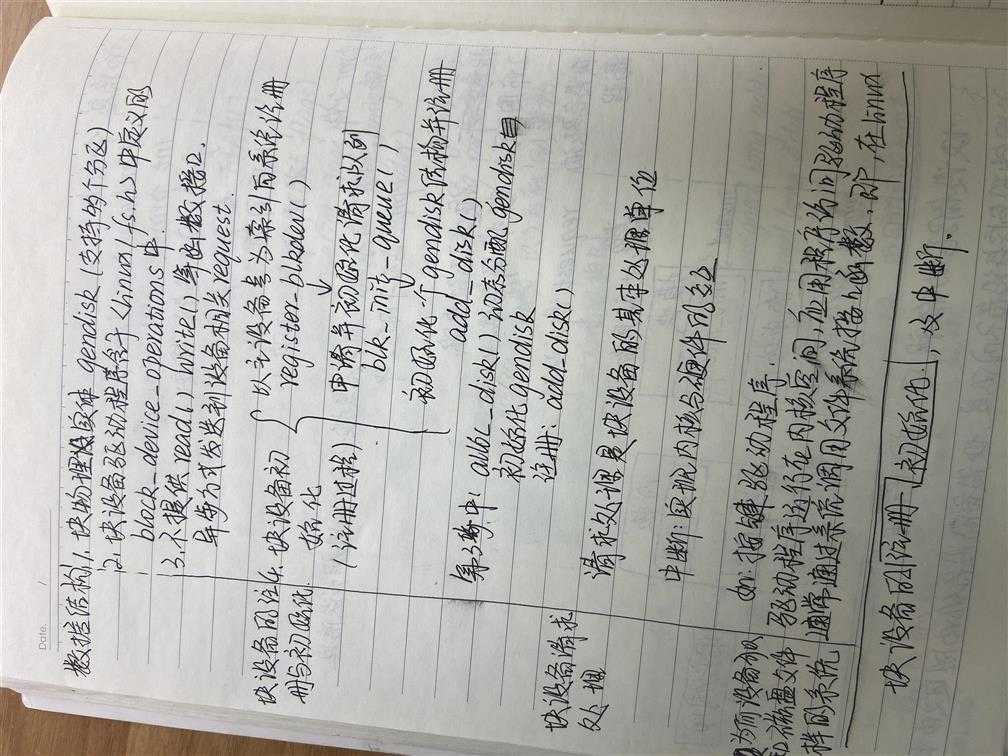 Date.
数据结构
1. 块物理设备实体 gendisk (支持多个分区)
2. 块设备驱动程序于<linux/fs.h>中定义的
block_device_operations中.
3. 不提供read() write()等函数接口.
异步方式发送到设备相关request.
块设备的注册与初始化.
4. 块设备初始化
(注册过程)
以主设备号为索引向系统注册
register_blkdev()
↓
申请并初始化请求队列
blk_init_queue()
↓
初始化一个gendisk结构并注册
add_disk()
第3步中: alloc_disk() 动态分配gendisk
初始化gendisk
注册: add_disk()
块设备请求处理
请求处理是块设备的基本处理单位
中断: 实现内核与硬件的交互
如: 按键驱动程序.
为何设备和磁盘文件一样的系统
驱动程序运行在内核空间, 应用程序访问驱动程序
通常通过系统调用文件系统接口函数, 即, 在linux
块设备的注册, 初始化, 及中断.